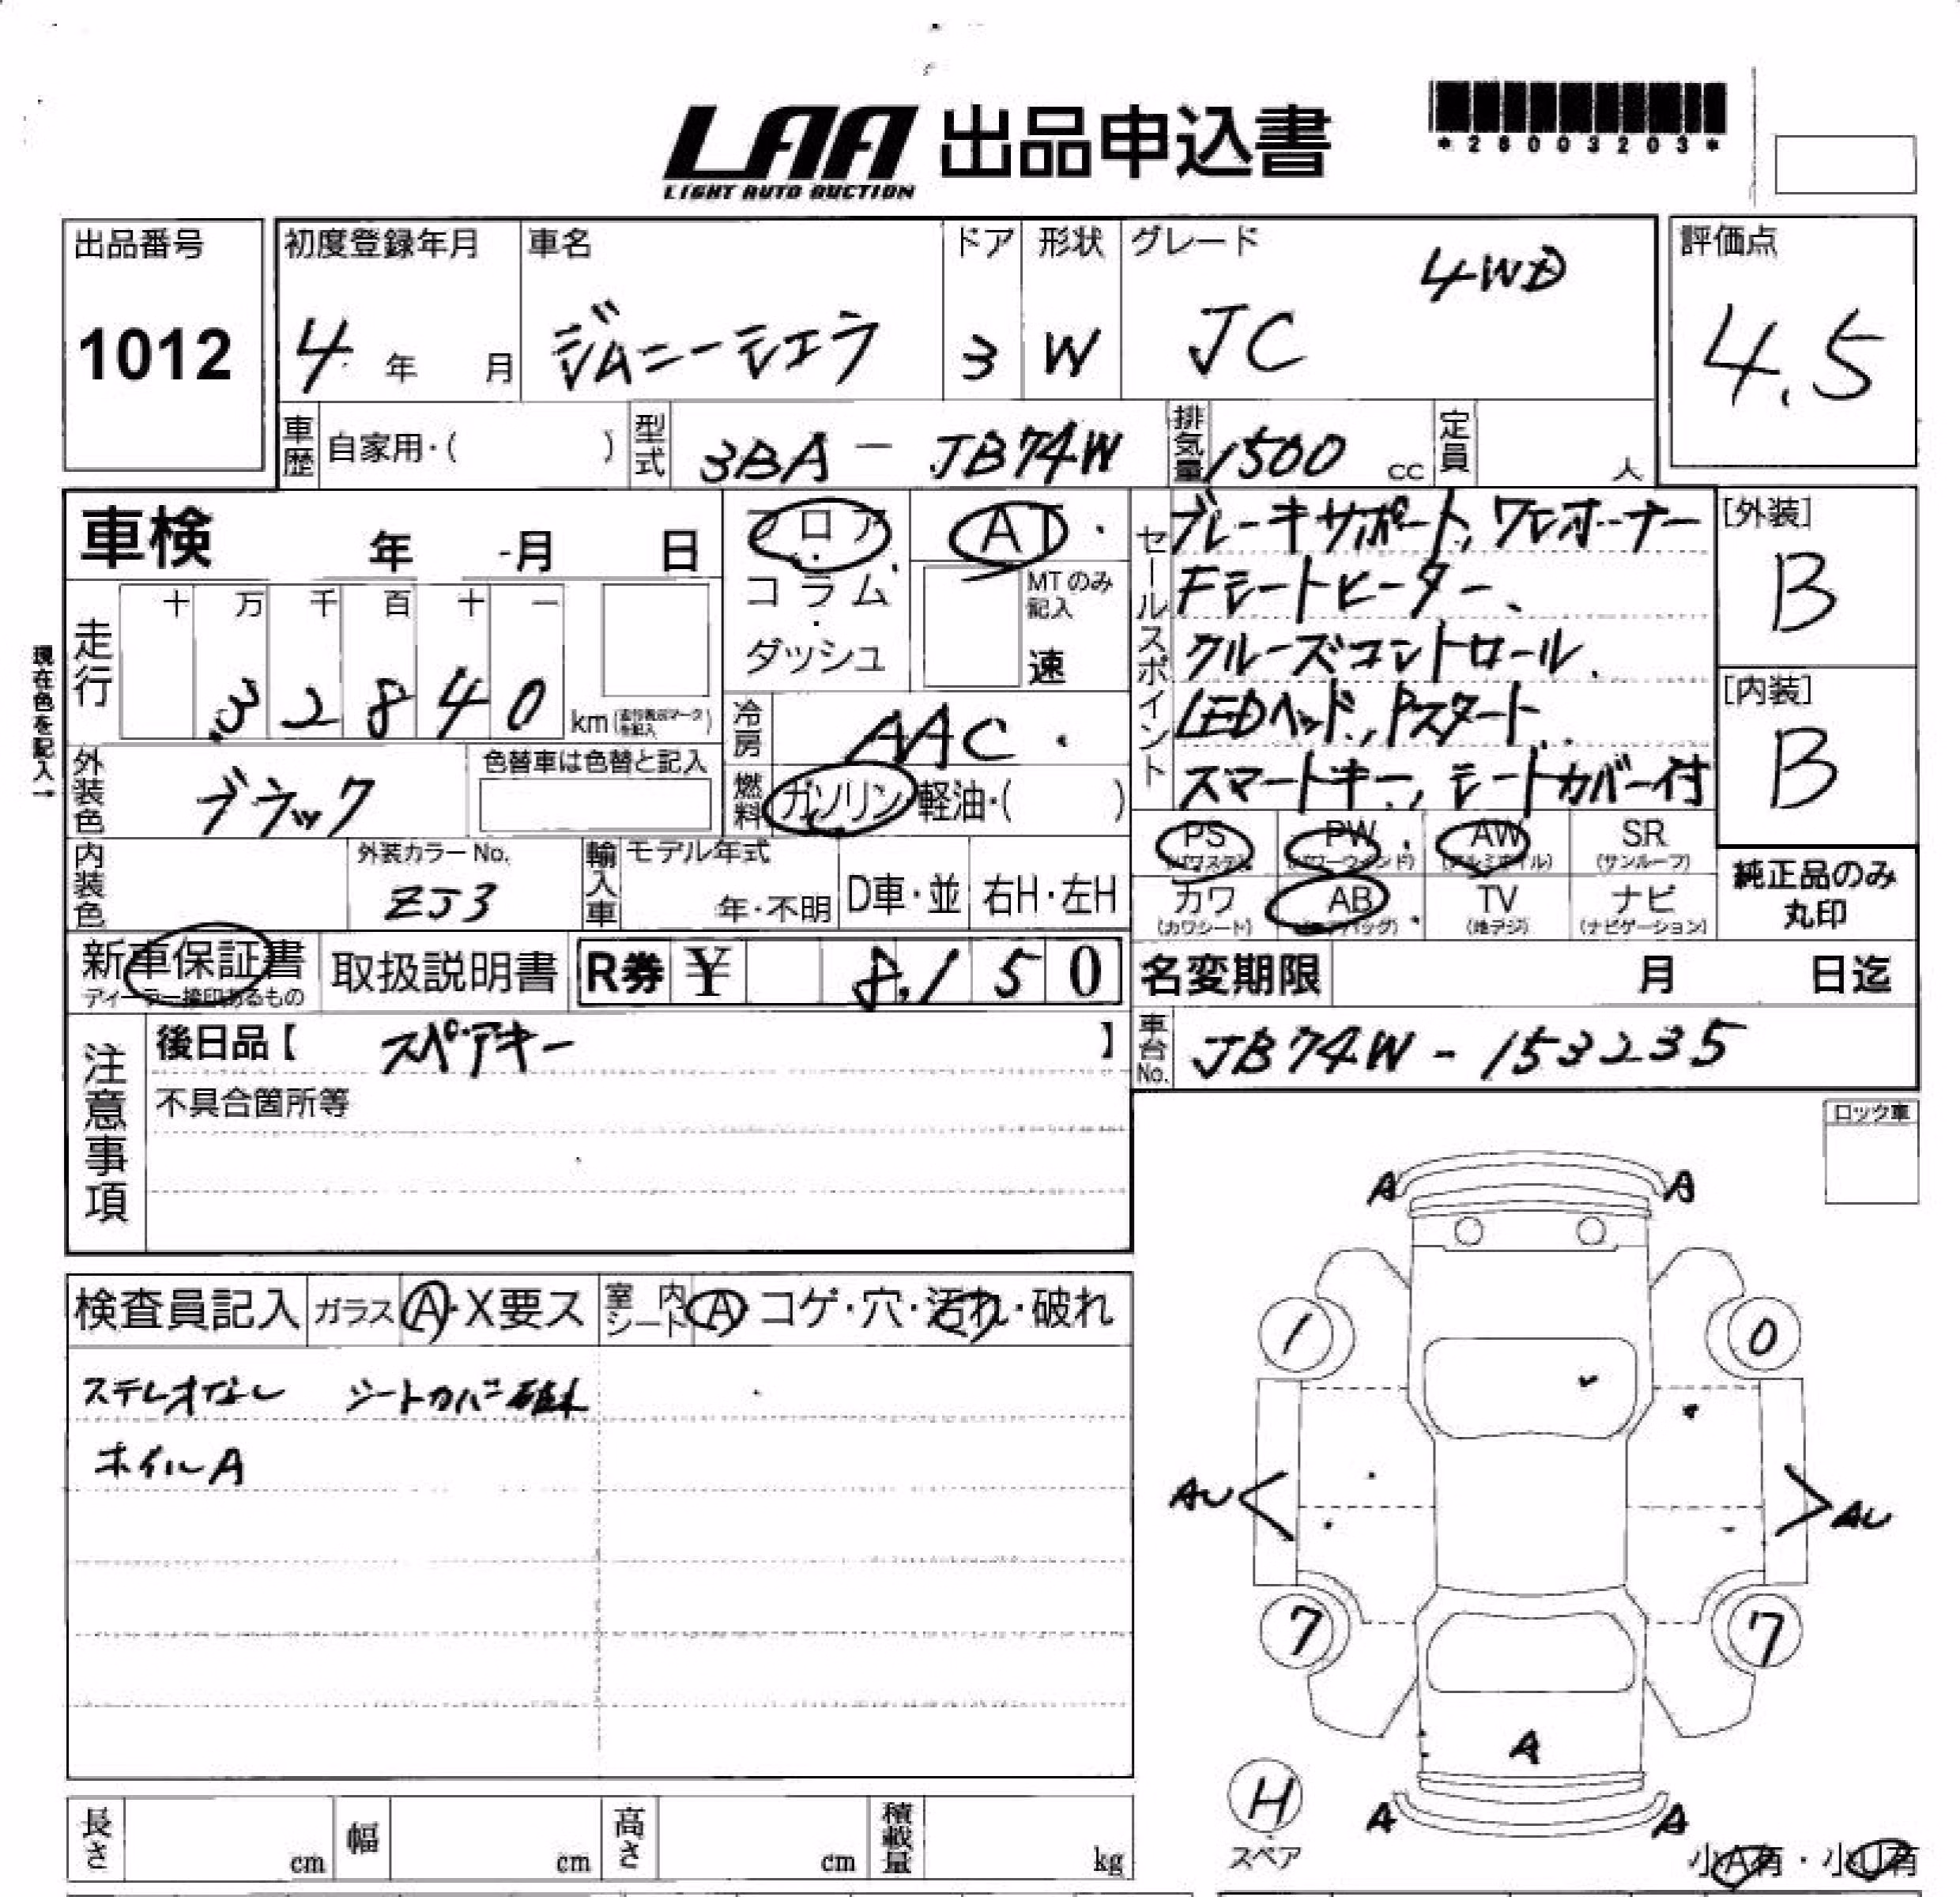 LAA 出品申込書
LIGHT AUTO AUCTION
*26003203*
出品番号
1012
初度登録年月
4年 月
車名
ジムニーシエラ
ドア
3
形状
W
グレード
4WD
JC
評価点
4.5
車歴 自家用・( )
型式 3BA - JB74W
排気量 1500 cc
定員 人
車検 年 月 日
フロア・コラム・ダッシュ
AT
MTのみ記入
速
セールスポイント
ブレーキサポート、ワンオーナー
Fシートヒーター、
クルーズコントロール、
LEDヘッド、Pスタート、
スマートキー、シートカバー付
[外装]
B
[内装]
B
現在色を記入→
走行
十 万 千 百 十 一
3 2 8 4 0 km
冷房 AAC
外装色 ブラック
色替車は色替と記入
燃料 ガソリン 軽油・( )
内装色
外装カラーNo.
ZJ3
輸入車
モデル年式
年・不明
D車・並
右H・左H
PS (パワステ)
PW (パワーウィンド)
AW (アルミホイル)
SR (サンルーフ)
カワ (カワシート)
AB (エアバッグ)
TV (地デジ)
ナビ (ナビゲーション)
純正品のみ
丸印
新車保証書
ディーラー捺印あるもの
取扱説明書
R券 ¥ 8,150
名変期限 月 日迄
注意事項
後日品【 スペアキー 】
不具合箇所等
車台No. JB74W - 153235
ロック車
検査員記入
ガラス A・X要ス
室内シート A・コゲ・穴・汚れ・破れ
ステレオなし シートカバー破れ
ホイルA
A A
1 0
AU AU
7 7
A
H
スペア
A A
小A有・小U有
長さ cm
幅 cm
高さ cm
積載量 kg